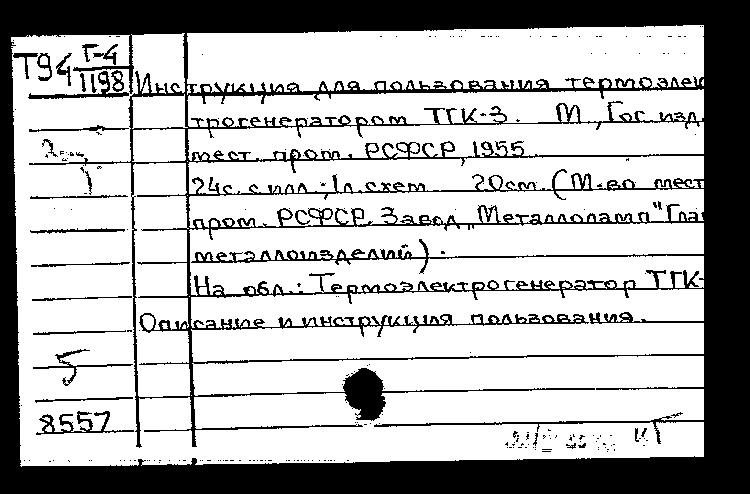 Т94 Г-4
1198
Инструкция для пользования термоэлек
трогенератором ТГК-3. М., Гос. изд.
мест. пром. РСФСР, 1955
24с. с илл.; 1л. схем 20см. (М-во мест
пром. РСФСР. Завод „Металлоламп" Глав
металлоизделий).
На обл.: Термоэлектрогенератор ТГК-
Описание и инструкция пользования.
5
8557